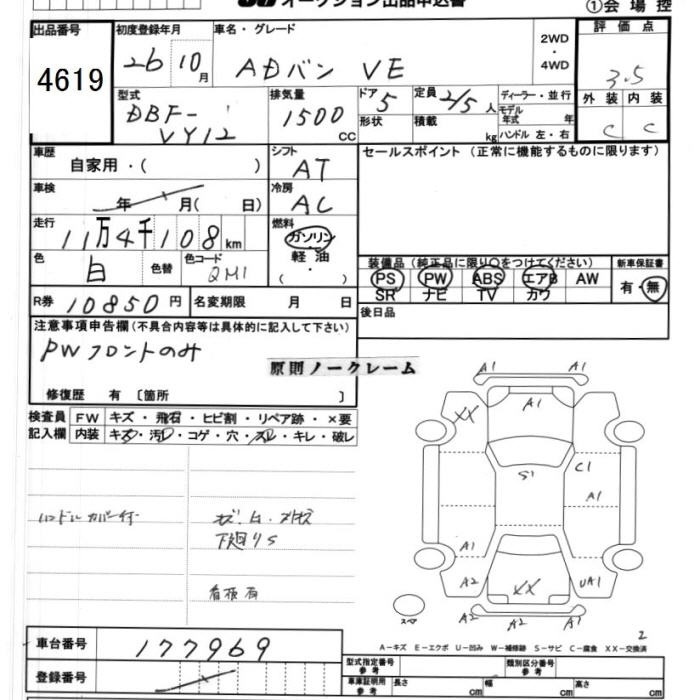 オークション出品申込書
①会場控
出品番号
4619
初度登録年月
26 10月
車名・グレード
ADバン VE
2WD
・
4WD
評価点
3.5
外装 内装
C C
型式
DBF-
VY12
排気量
1500
cc
ドア
5
形状
定員 2/5人
積載 kg
ディーラー・並行
モデル
年式 年
ハンドル 左・右
車歴
自家用・( )
シフト
AT
セールスポイント (正常に機能するものに限ります)
車検
年 月( 日)
冷房
AC
走行
11万4千108km
燃料
ガソリン
・
軽油
・
色
白
色替
色コード
QM1
装備品 (純正品に限り○をつけてください)
PS PW ABS エアB AW
SR ナビ TV カワ
新車保証書
有・無
R券 10850円
名変期限 月 日
後日品
注意事項申告欄(不具合内容等は具体的に記入して下さい)
PWフロントのみ
原則ノークレーム
修復歴 有 〔箇所 〕
検査員
記入欄
FW キズ・飛石・ヒビ割・リペア跡・×要
内装 キズ・汚レ・コゲ・穴・スレ・キレ・破レ
ハンドルカバー付
下廻りS
看板有
A1 A1
XX A1
S1 C1
A1
A1
A2 XX UA1
A2 A2 A1
スペア
2
A-キズ E-エクボ U-凹み W-補修跡 S-サビ C-腐食 XX-交換済
車台番号
177969
登録番号
型式指定番号
参考
類別区分番号
参考
車庫証明用
参考
長さ cm
幅 cm
高さ cm